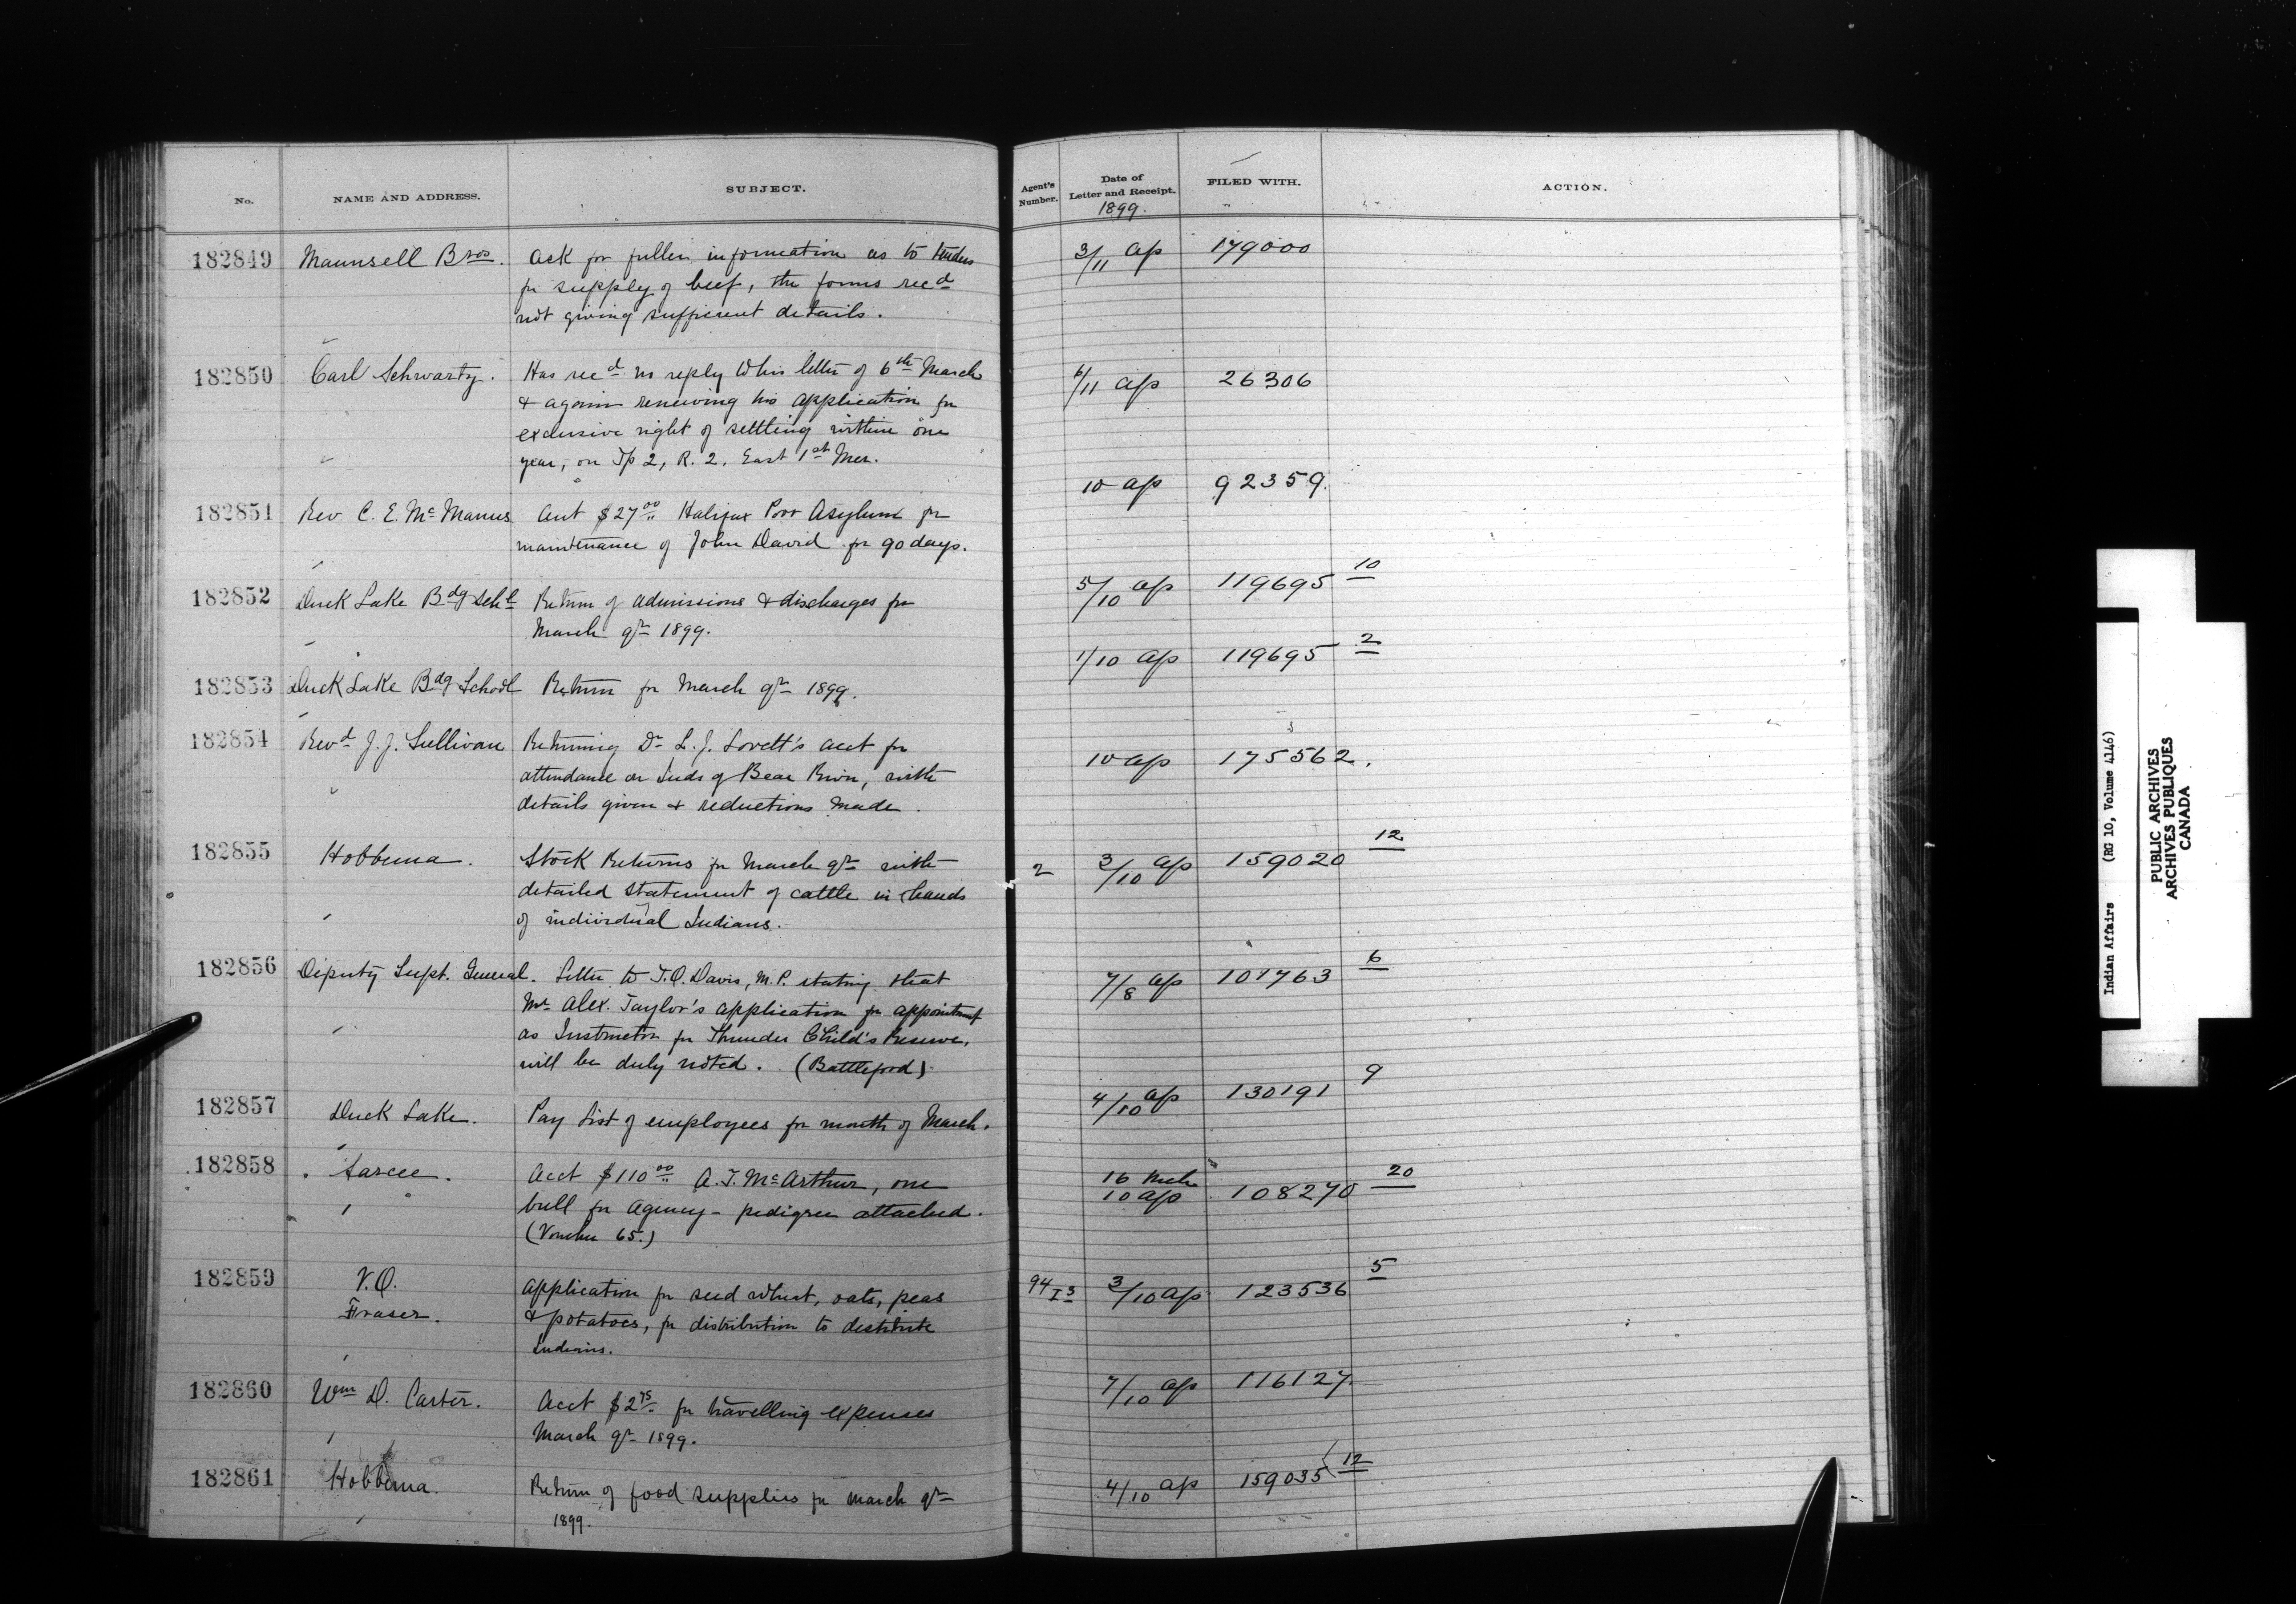 No.
NAME AND ADDRESS.
SUBJECT.
Agent's Number.
Date of Letter and Receipt.
1899.
FILED WITH.
ACTION.
182849 Maunsell Bros. Ask for fuller information as to tenders
for supply of beef, the forms recd
not giving sufficient details.
3/11 Ap 179000
182850 Carl Schwartz. Has recd no reply to his letter of 6th March
& again renewing his application for
exclusive right of settling within one
year, on Tp 2, R. 2. East 1st Mer.
6/11 Ap 26306
182851 Rev. C. E. McManus Acct $27.00 Halifax Poor Asylum for
maintenance of John David for 90 days.
10 Ap 92359.
182852 Duck Lake Bdg Schl Return of admissions & discharges for
March qr 1899.
5/10 Ap 119695 10
182853 Duck Lake Bdg School Return for March qr 1899.
1/10 Ap 119695 2
182854 Revd J. J. Sullivan Returning Dr L. J. Lovett's acct for
attendance on Inds of Bear River, with
details given & reductions made.
10 Ap 175562.
182855 Hobbema. Stock Returns for March qr with
detailed statement of cattle in hands
of individual Indians.
2 3/10 Ap 159020 12
182856 Deputy Supt. General. Letter to T.O. Davis, M.P. stating that
Mr Alex. Taylor's application for appointment
as Instructor for Thunder Child's Reserve,
will be duly noted. (Battleford)
7/8 Ap 101763 6
182857 Duck Lake. Pay List of employees for month of March.
4/10 Ap 130191 9
182858 Sarcee. Acct $110.00 A. T. McArthur, one
bull for Agency - pedigree attached.
(Voucher 65.)
16 Mch
10 Ap 108270 20
182859 V.O.
Fraser. Application for seed wheat, oats, peas
& potatoes, for distribution to destitute
Indians.
94 I3 3/10 Ap 123536 5
182860 Wm D. Carter. Acct $2.75 for travelling expenses
March qr 1899.
7/10 Ap 116127.
182861 Hobbema. Return of food supplies for March qr
1899.
4/10 Ap 159035 12
Indian Affairs (RG 10, Volume 4146)
PUBLIC ARCHIVES
ARCHIVES PUBLIQUES
CANADA